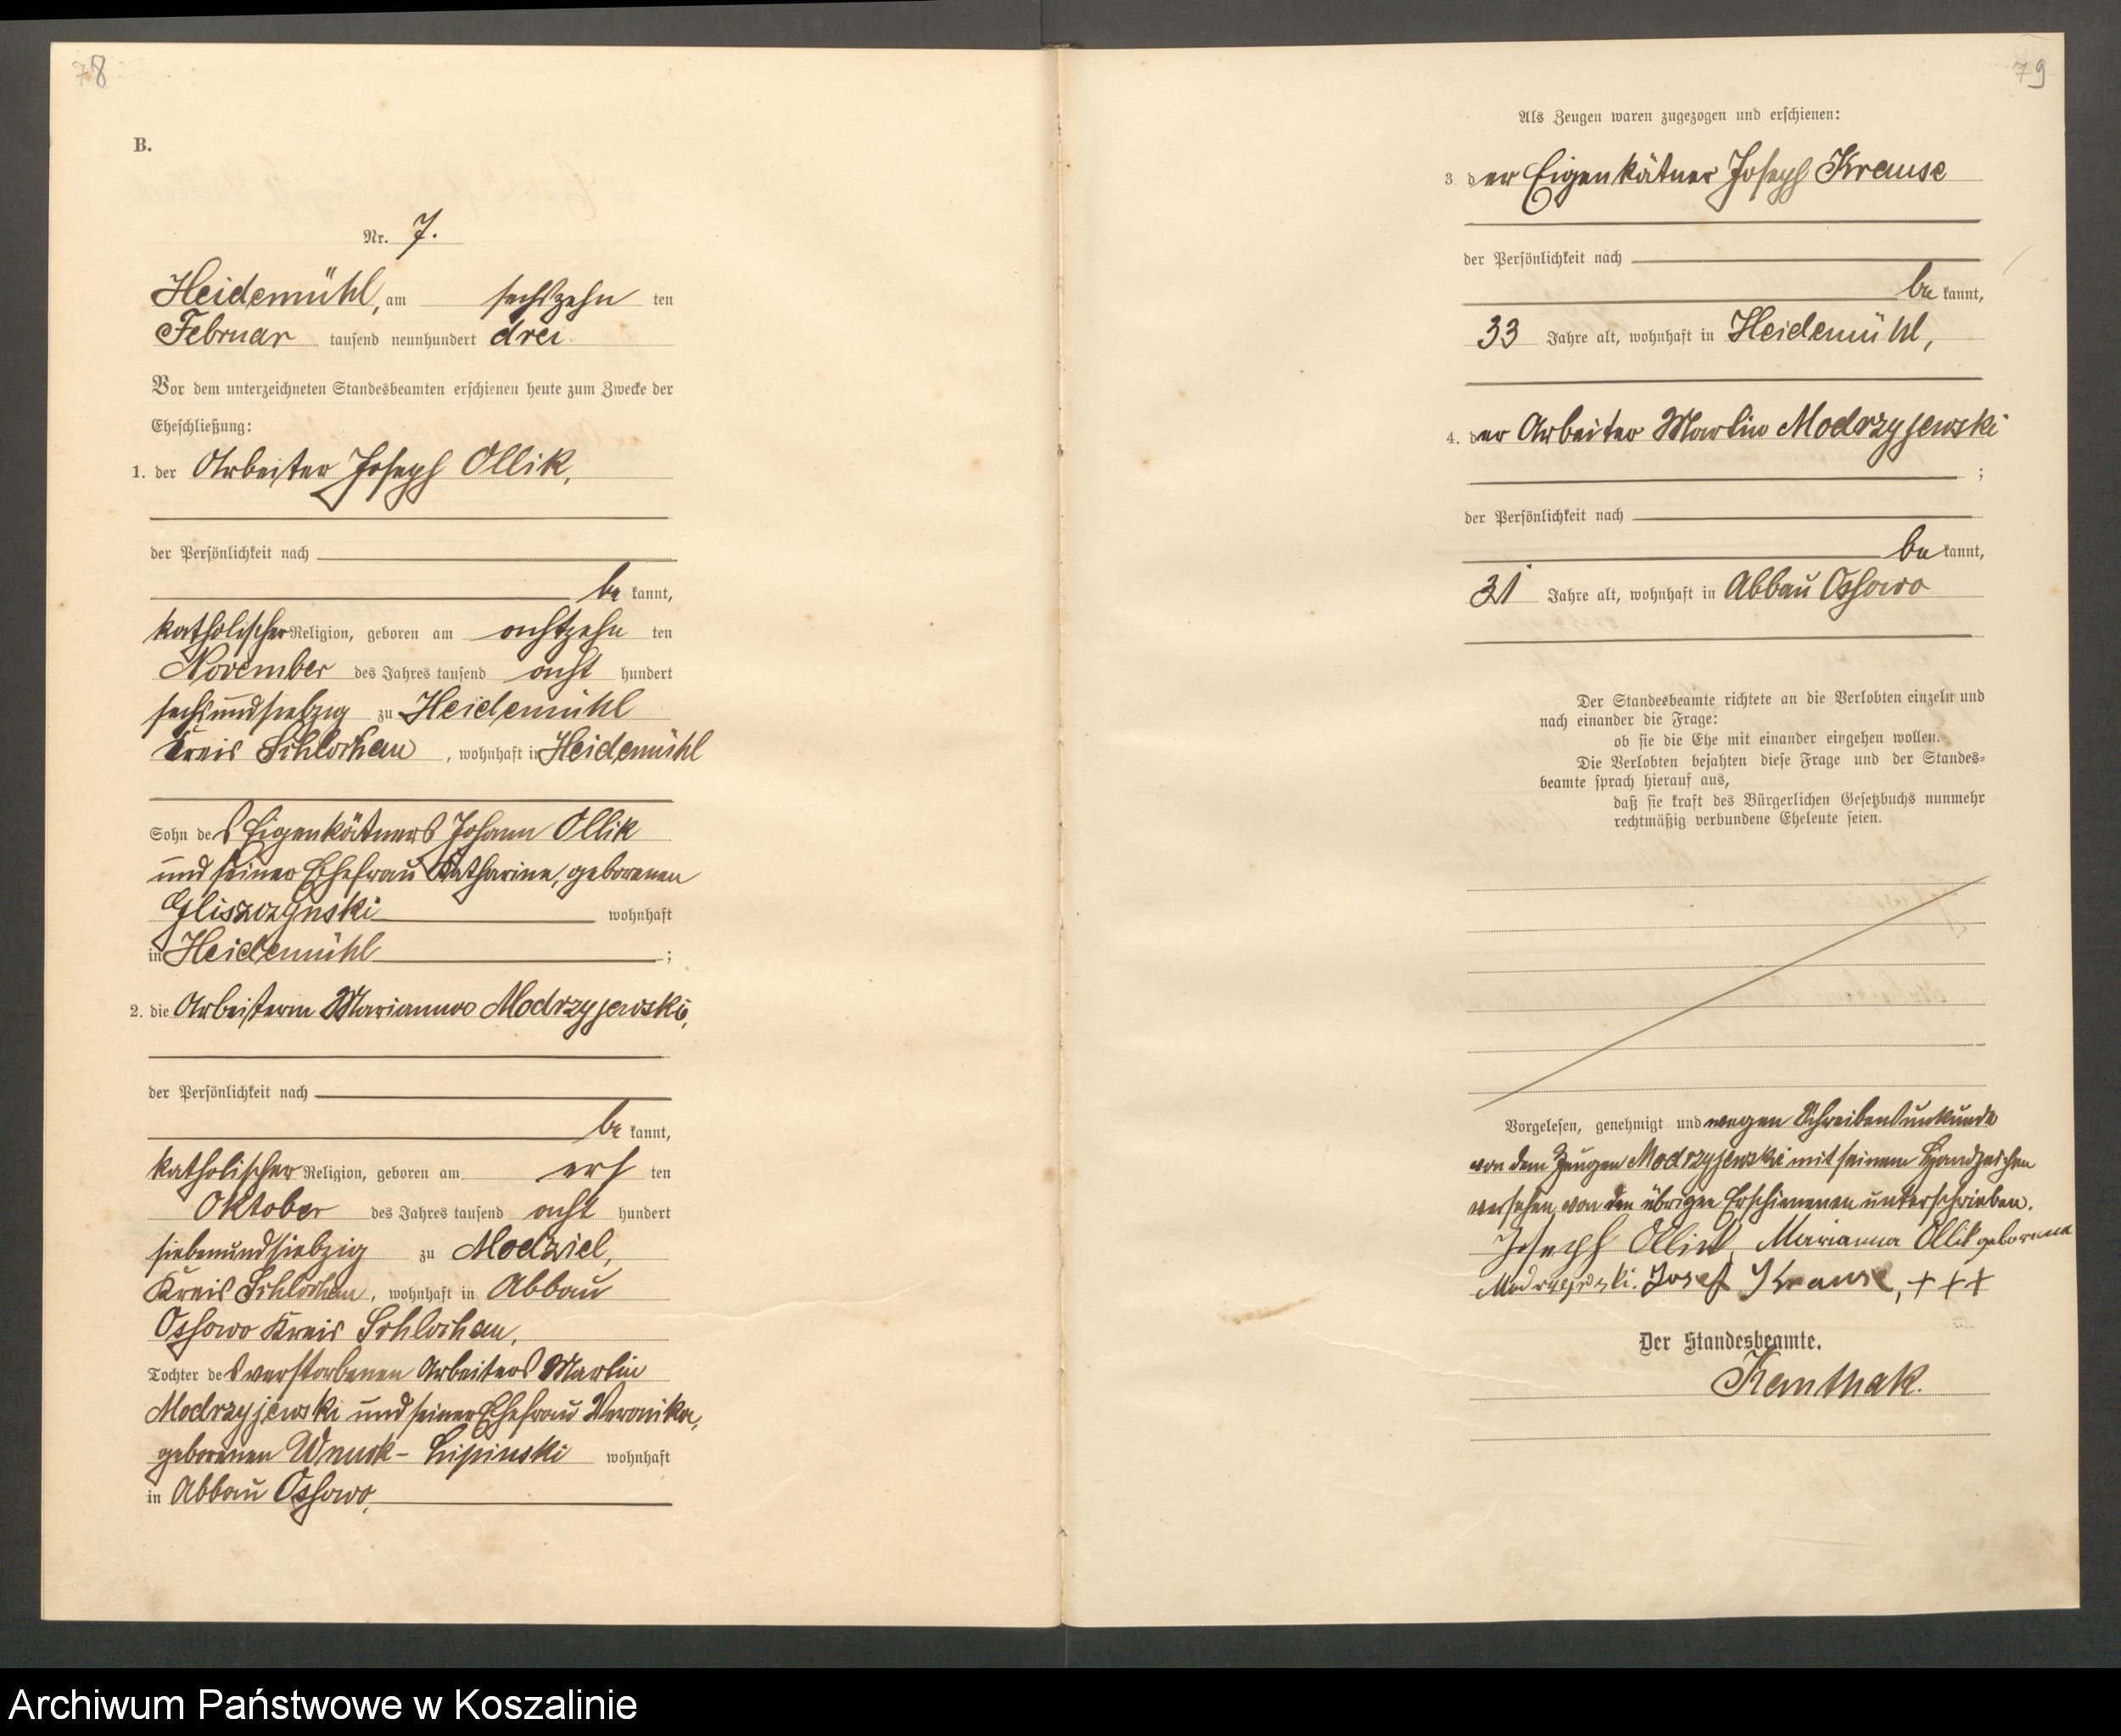 78
B.
Nr. 7.
Heidemühl, am sechszehn ten
Februar tausend neunhundert drei
Vor dem unterzeichneten Standesbeamten erschienen heute zum Zwecke der
Eheschließung:
1. der Arbeiter Joseph Ollik,
der Persönlichkeit nach
be kannt,
katholischer Religion, geboren am achtzehn ten
November des Jahres tausend acht hundert
sechsundsiebzig zu Heidemühl
Kreis Schlochau, wohnhaft in Heidemühl
Sohn des Eigenkätners Johann Ollik
und seiner Ehefrau Katharine, geborenen
Gliszczynski wohnhaft
in Heidemühl ;
2. die Arbeiterin Marianna Modrzyjewski,
der Persönlichkeit nach
be kannt,
katholischer Religion, geboren am ers ten
Oktober des Jahres tausend acht hundert
siebenundsiebzig zu Modziel,
Kreis Schlochau, wohnhaft in Abbau
Ossowo Kreis Schlochau,
Tochter des verstorbenen Arbeiters Martin
Modrzyjewski und seiner Ehefrau Veronika,
geborenen Wnuck-Lipinski wohnhaft
in Abbau Ossowo,
79
Als Zeugen waren zugezogen und erschienen:
3. der Eigenkätner Joseph Krause
der Persönlichkeit nach
be kannt,
33 Jahre alt, wohnhaft in Heidemühl,
4. der Arbeiter Martin Modrzyjewski
;
der Persönlichkeit nach
be kannt,
31 Jahre alt, wohnhaft in Abbau Ossowo
Der Standesbeamte richtete an die Verlobten einzeln und
nach einander die Frage:
ob sie die Ehe mit einander eingehen wollen.
Die Verlobten bejahten diese Frage und der Standes=
beamte sprach hierauf aus,
daß sie kraft des Bürgerlichen Gesetzbuchs nunmehr
rechtmäßig verbundene Eheleute seien.
Vorgelesen, genehmigt und wegen Schreibensunkunde
von dem Zeugen Modrzyjewski mit seinem Handzeichen
versehen, von den übrigen Erschienenen unterschrieben.
Joseph Ollik, Marianna Ollik geborene
Modrzejewski. Josef Krause, + + +
Der Standesbeamte.
Archiwum Państwowe w Koszalinie